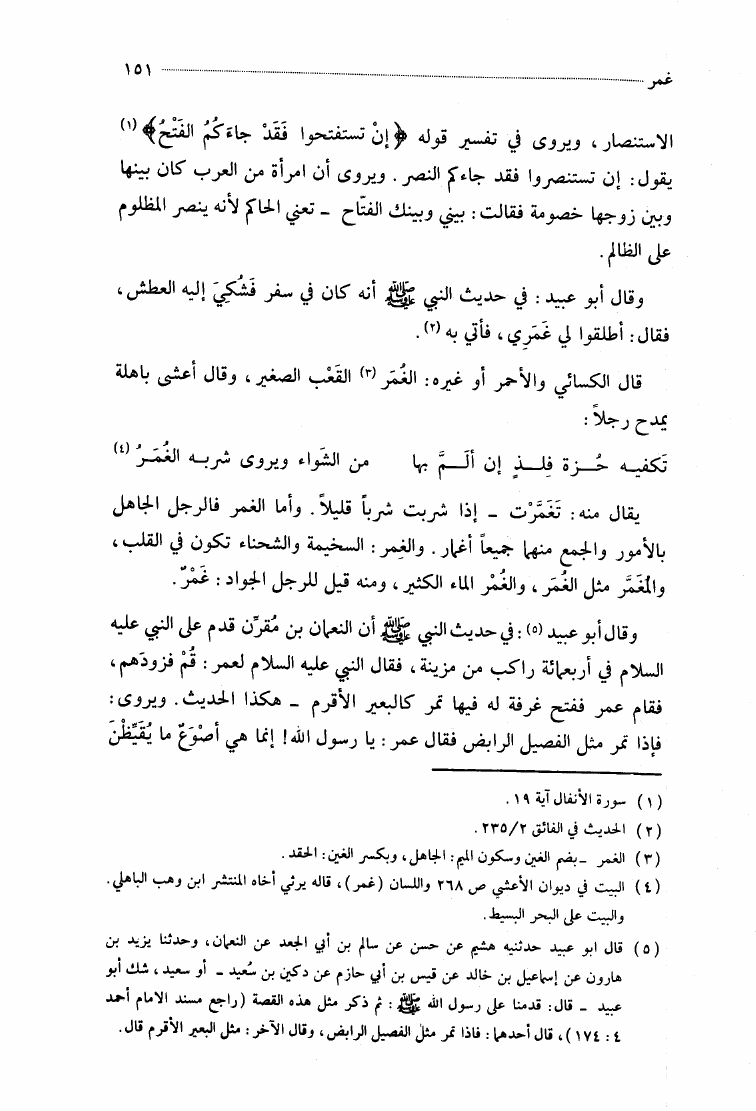 غمر ١٥١
الاستنصار، ويروى في تفسير قوله ﴿إنْ تستفتحوا فَقَدْ جاءَكُمُ الفَتْحُ﴾ (١)
يقول: إن تستنصروا فقد جاءكم النصر. ويروى أن امرأة من العرب كان بينها
وبين زوجها خصومة فقالت: بيني وبينك الفتّاح – تعني الحاكم لأنه ينصر المظلوم
على الظالم.
وقال أبو عبيد: في حديث النبي ﷺ أنه كان في سفر فَشُكِيَ إليه العطش،
فقال: أطلقوا لي غُمَرِي، فأتي به (٢).
قال الكسائي والأحمر أو غيره: الغُمَر (٣) القَعْب الصغير، وقال أعشى باهلة
يمدح رجلاً:
تَكفيه حُزة فِلذٍ إن ألَمَّ بها من الشَواء ويروى شربه الغُمَرُ (٤)
يقال منه: تَغَمَّرْت – إذا شربت شرباً قليلاً. وأما الغمر فالرجل الجاهل
بالأمور والجمع منهما جميعاً أغمار. والغِمر: السخيمة والشحناء تكون في القلب،
والمُغَمَّر مثل الغُمَر، والغُمْر الماء الكثير، ومنه قيل للرجل الجواد: غَمْرٌ.
وقال أبو عبيد (٥): في حديث النبي ﷺ أن النعمان بن مُقرِّن قدم على النبي عليه
السلام في أربعمائة راكب من مزينة، فقال النبي عليه السلام لعمر: قُمْ فزودَهم،
فقام عمر ففتح غرفة له فيها تمر كالبعير الأقرم – هكذا الحديث. ويروى:
فإذا تمر مثل الفصيل الرابض فقال عمر: يا رسول الله! إنما هي أصْوَعٌ ما يُقَيِّظْنَ
(١) سورة الأنفال آية ١٩.
(٢) الحديث في الفائق ٢/٢٣٥.
(٣) الغمر – بضم الغين وسكون الميم: الجاهل، وبكسر الغين: الحقد.
(٤) البيت في ديوان الأعشي ص ٢٦٨ واللسان (غمر)، قاله يرثي أخاه المنتشر ابن وهب الباهلي.
والبيت على البحر البسيط.
(٥) قال ابو عبيد حدثنيه هشيم عن حسن عن سالم بن أبي الجعد عن النعمان، وحدثنا يزيد بن
هارون عن إسماعيل بن خالد عن قيس بن أبي حازم عن دكين بن سُعيد – أو سعيد، شك أبو
عبيد – قال: قدمنا على رسول الله ﷺ: ثم ذكر مثل هذه القصة (راجع مسند الامام أحمد
٤: ١٧٤)، قال أحدهما: فاذا تمر مثل الفصيل الرابض، وقال الآخر: مثل البعير الأقرم قال.